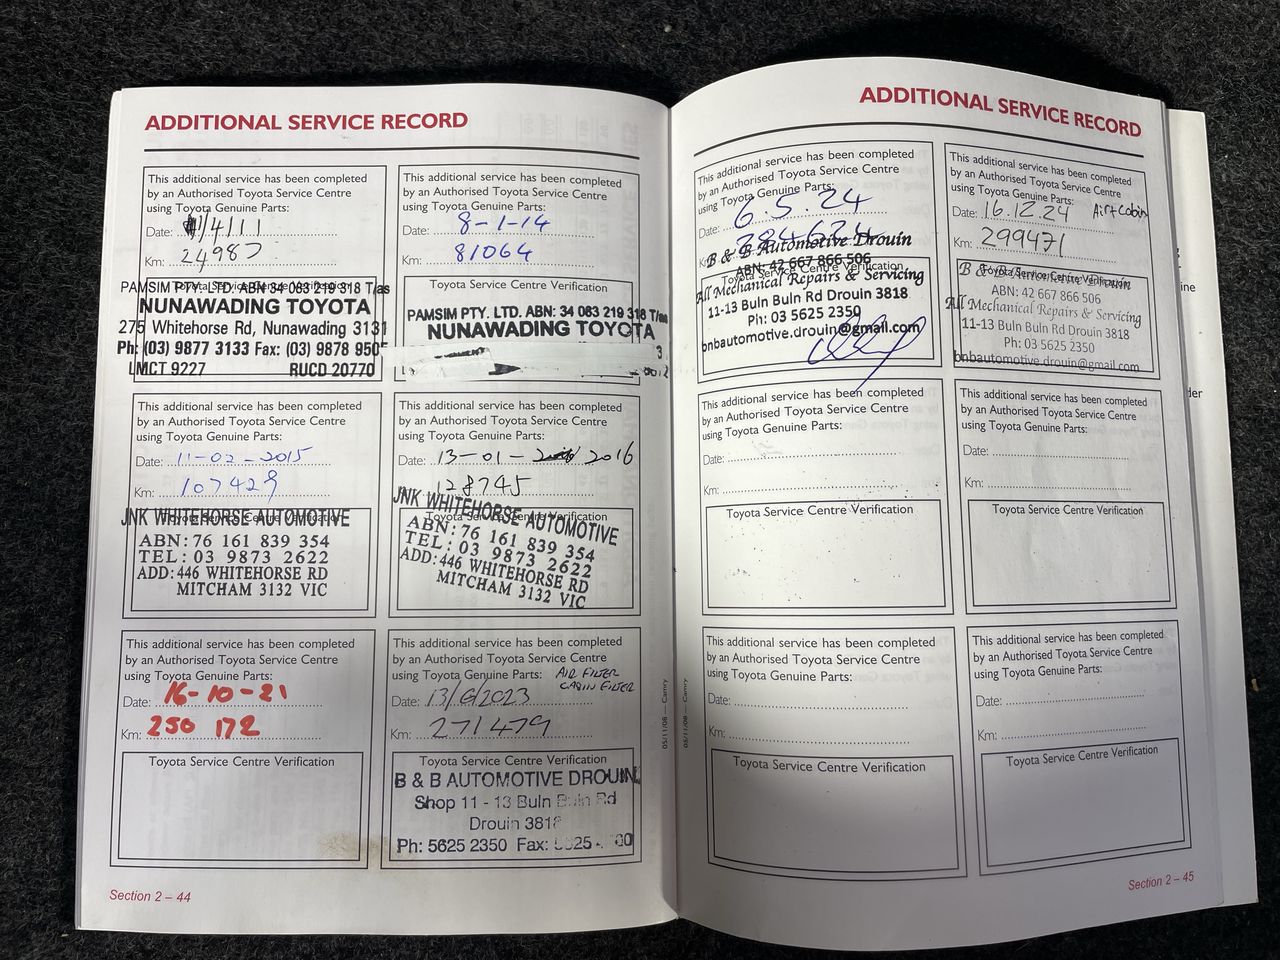 ADDITIONAL SERVICE RECORD
This additional service has been completed
by an Authorised Toyota Service Centre
using Toyota Genuine Parts:
Date: 1/4/11
Km: 24987
Toyota Service Centre Verification
PAMSIM PTY. LTD. ABN: 34 083 219 318 T/as
NUNAWADING TOYOTA
275 Whitehorse Rd, Nunawading 3131
Ph: (03) 9877 3133 Fax: (03) 9878 9505
LMCT 9227 RUCD 20770
This additional service has been completed
by an Authorised Toyota Service Centre
using Toyota Genuine Parts:
Date: 8-1-14
Km: 81064
Toyota Service Centre Verification
PAMSIM PTY. LTD. ABN: 34 083 219 318 T/as
NUNAWADING TOYOTA
This additional service has been completed
by an Authorised Toyota Service Centre
using Toyota Genuine Parts:
Date: 11-02-2015
Km: 107429
Toyota Service Centre Verification
JNK WHITEHORSE AUTOMOTIVE
ABN: 76 161 839 354
TEL: 03 9873 2622
ADD: 446 WHITEHORSE RD
MITCHAM 3132 VIC
This additional service has been completed
by an Authorised Toyota Service Centre
using Toyota Genuine Parts:
Date: 13-01-2016
128745
Toyota Service Centre Verification
JNK WHITEHORSE AUTOMOTIVE
ABN: 76 161 839 354
TEL: 03 9873 2622
ADD: 446 WHITEHORSE RD
MITCHAM 3132 VIC
This additional service has been completed
by an Authorised Toyota Service Centre
using Toyota Genuine Parts:
Date: 16-10-21
Km: 250 172
Toyota Service Centre Verification
This additional service has been completed
by an Authorised Toyota Service Centre
using Toyota Genuine Parts: AIR FILTER
CABIN FILTER
Date: 13/6/2023
Km: 271479
Toyota Service Centre Verification
B & B AUTOMOTIVE DROUIN
Shop 11 - 13 Buln Buln Rd
Drouin 3818
Ph: 5625 2350 Fax:
Section 2 – 44
05/11/08 — Camry
ADDITIONAL SERVICE RECORD
This additional service has been completed
by an Authorised Toyota Service Centre
using Toyota Genuine Parts:
6.5.24
Toyota Service Centre Verification
B & B Automotive Drouin
ABN: 42 667 866 506
All Mechanical Repairs & Servicing
11-13 Buln Buln Rd Drouin 3818
Ph: 03 5625 2350
bnbautomotive.drouin@gmail.com
This additional service has been completed
by an Authorised Toyota Service Centre
using Toyota Genuine Parts:
Date: 16.12.24 Air+Cabin
Km: 299471
Toyota Service Centre Verification
B & B Automotive Drouin
ABN: 42 667 866 506
All Mechanical Repairs & Servicing
11-13 Buln Buln Rd Drouin 3818
Ph: 03 5625 2350
bnbautomotive.drouin@gmail.com
This additional service has been completed
by an Authorised Toyota Service Centre
using Toyota Genuine Parts:
Date:
Km:
Toyota Service Centre Verification
This additional service has been completed
by an Authorised Toyota Service Centre
using Toyota Genuine Parts:
Date:
Km:
Toyota Service Centre Verification
This additional service has been completed
by an Authorised Toyota Service Centre
using Toyota Genuine Parts:
Date:
Km:
Toyota Service Centre Verification
This additional service has been completed
by an Authorised Toyota Service Centre
using Toyota Genuine Parts:
Date:
Km:
Toyota Service Centre Verification
05/11/08 — Camry
Section 2 – 45